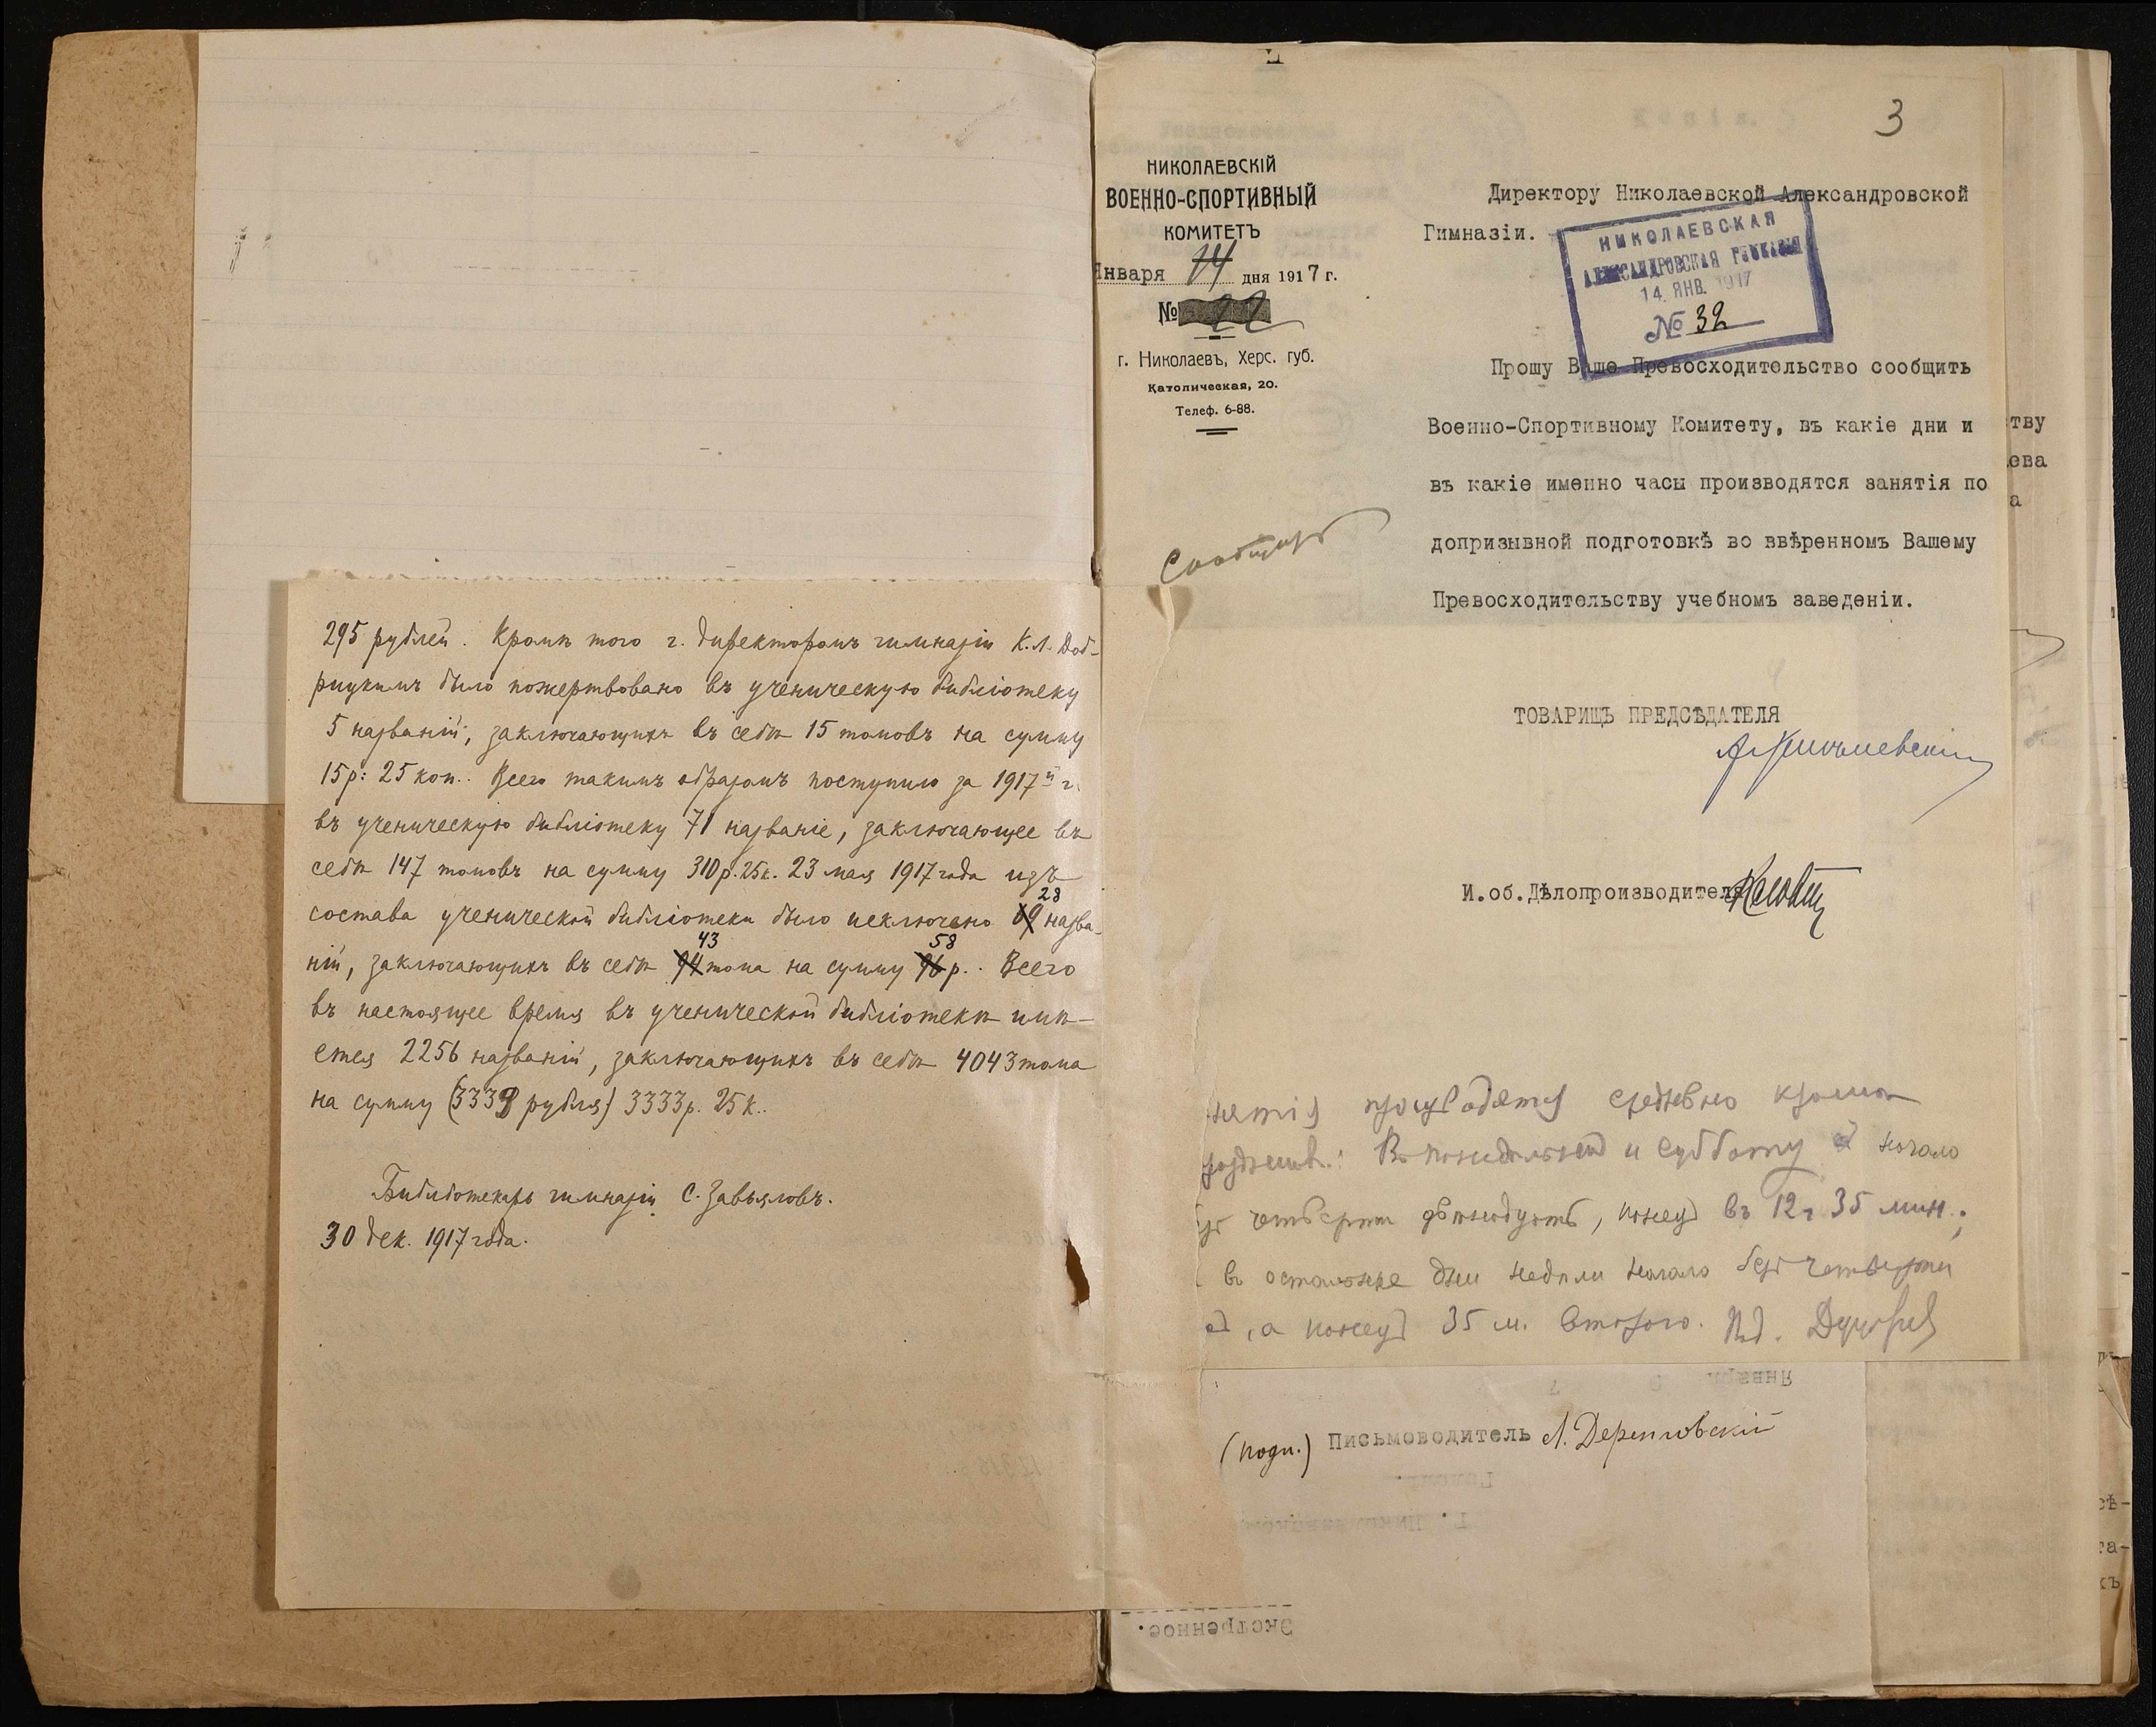 295 рублей. Кромѣ того г. директоромъ гимназіи К. Л. Доб-
рицкимъ было пожертвовано въ ученическую библіотеку
5 названій, заключающихъ въ себѣ 15 томовъ на сумму
15 р. 25 коп.. Всего такимъ образомъ поступило за 1917й г.
въ ученическую библіотеку 71 названіе, заключающее въ
себѣ 147 томовъ на сумму 310 р. 25 к. 23 мая 1917 года изъ
состава ученической библіотеки было исключено 69 28 назва-
ній, заключающихъ въ себѣ 94 43 тома на сумму 96 58 р.. Всего
въ настоящее время въ ученической библіотекѣ имѣ-
ется 2256 названій, заключающихъ въ себѣ 4043 тома
на сумму (3333 рубля) 3333 р. 25 к..
Библіотекарь гимназіи С. Завьяловъ.
30 дек. 1917 года.
3
НИКОЛАЕВСКІЙ
ВОЕННО-СПОРТИВНЫЙ
КОМИТЕТЪ
Января 14 дня 1917 г.
№ 22
г. Николаевъ, Херс. губ.
Католическая, 20.
Телеф. 6-88.
Директору Николаевской Александровской
Гимназіи.
НИКОЛАЕВСКАЯ
АЛЕКСАНДРОВСКАЯ ГИМНАЗІЯ
14 ЯНВ. 1917
№ 32
Прошу Ваше Превосходительство сообщить
Военно-Спортивному Комитету, въ какіе дни и
въ какіе именно часы производятся занятія по
допризывной подготовкѣ во ввѣренномъ Вашему
Превосходительству учебномъ заведеніи.
Сообщить
ТОВАРИЩЪ ПРЕДСѢДАТЕЛЯ
И.об.Дѣлопроизводителя
нятія производятся ежедневно кромѣ
: Въ понедѣльникъ и субботу начало
четверти , конецъ въ 12 ч 35 мин.;
въ остальные дни недѣли начало безъ четверти
, а конецъ 35 м. второго.
(подп.) Письмоводитель Л. Деренговскій
Января
Экстренное.
тву
ева
а
сѣ-
та-
хъ